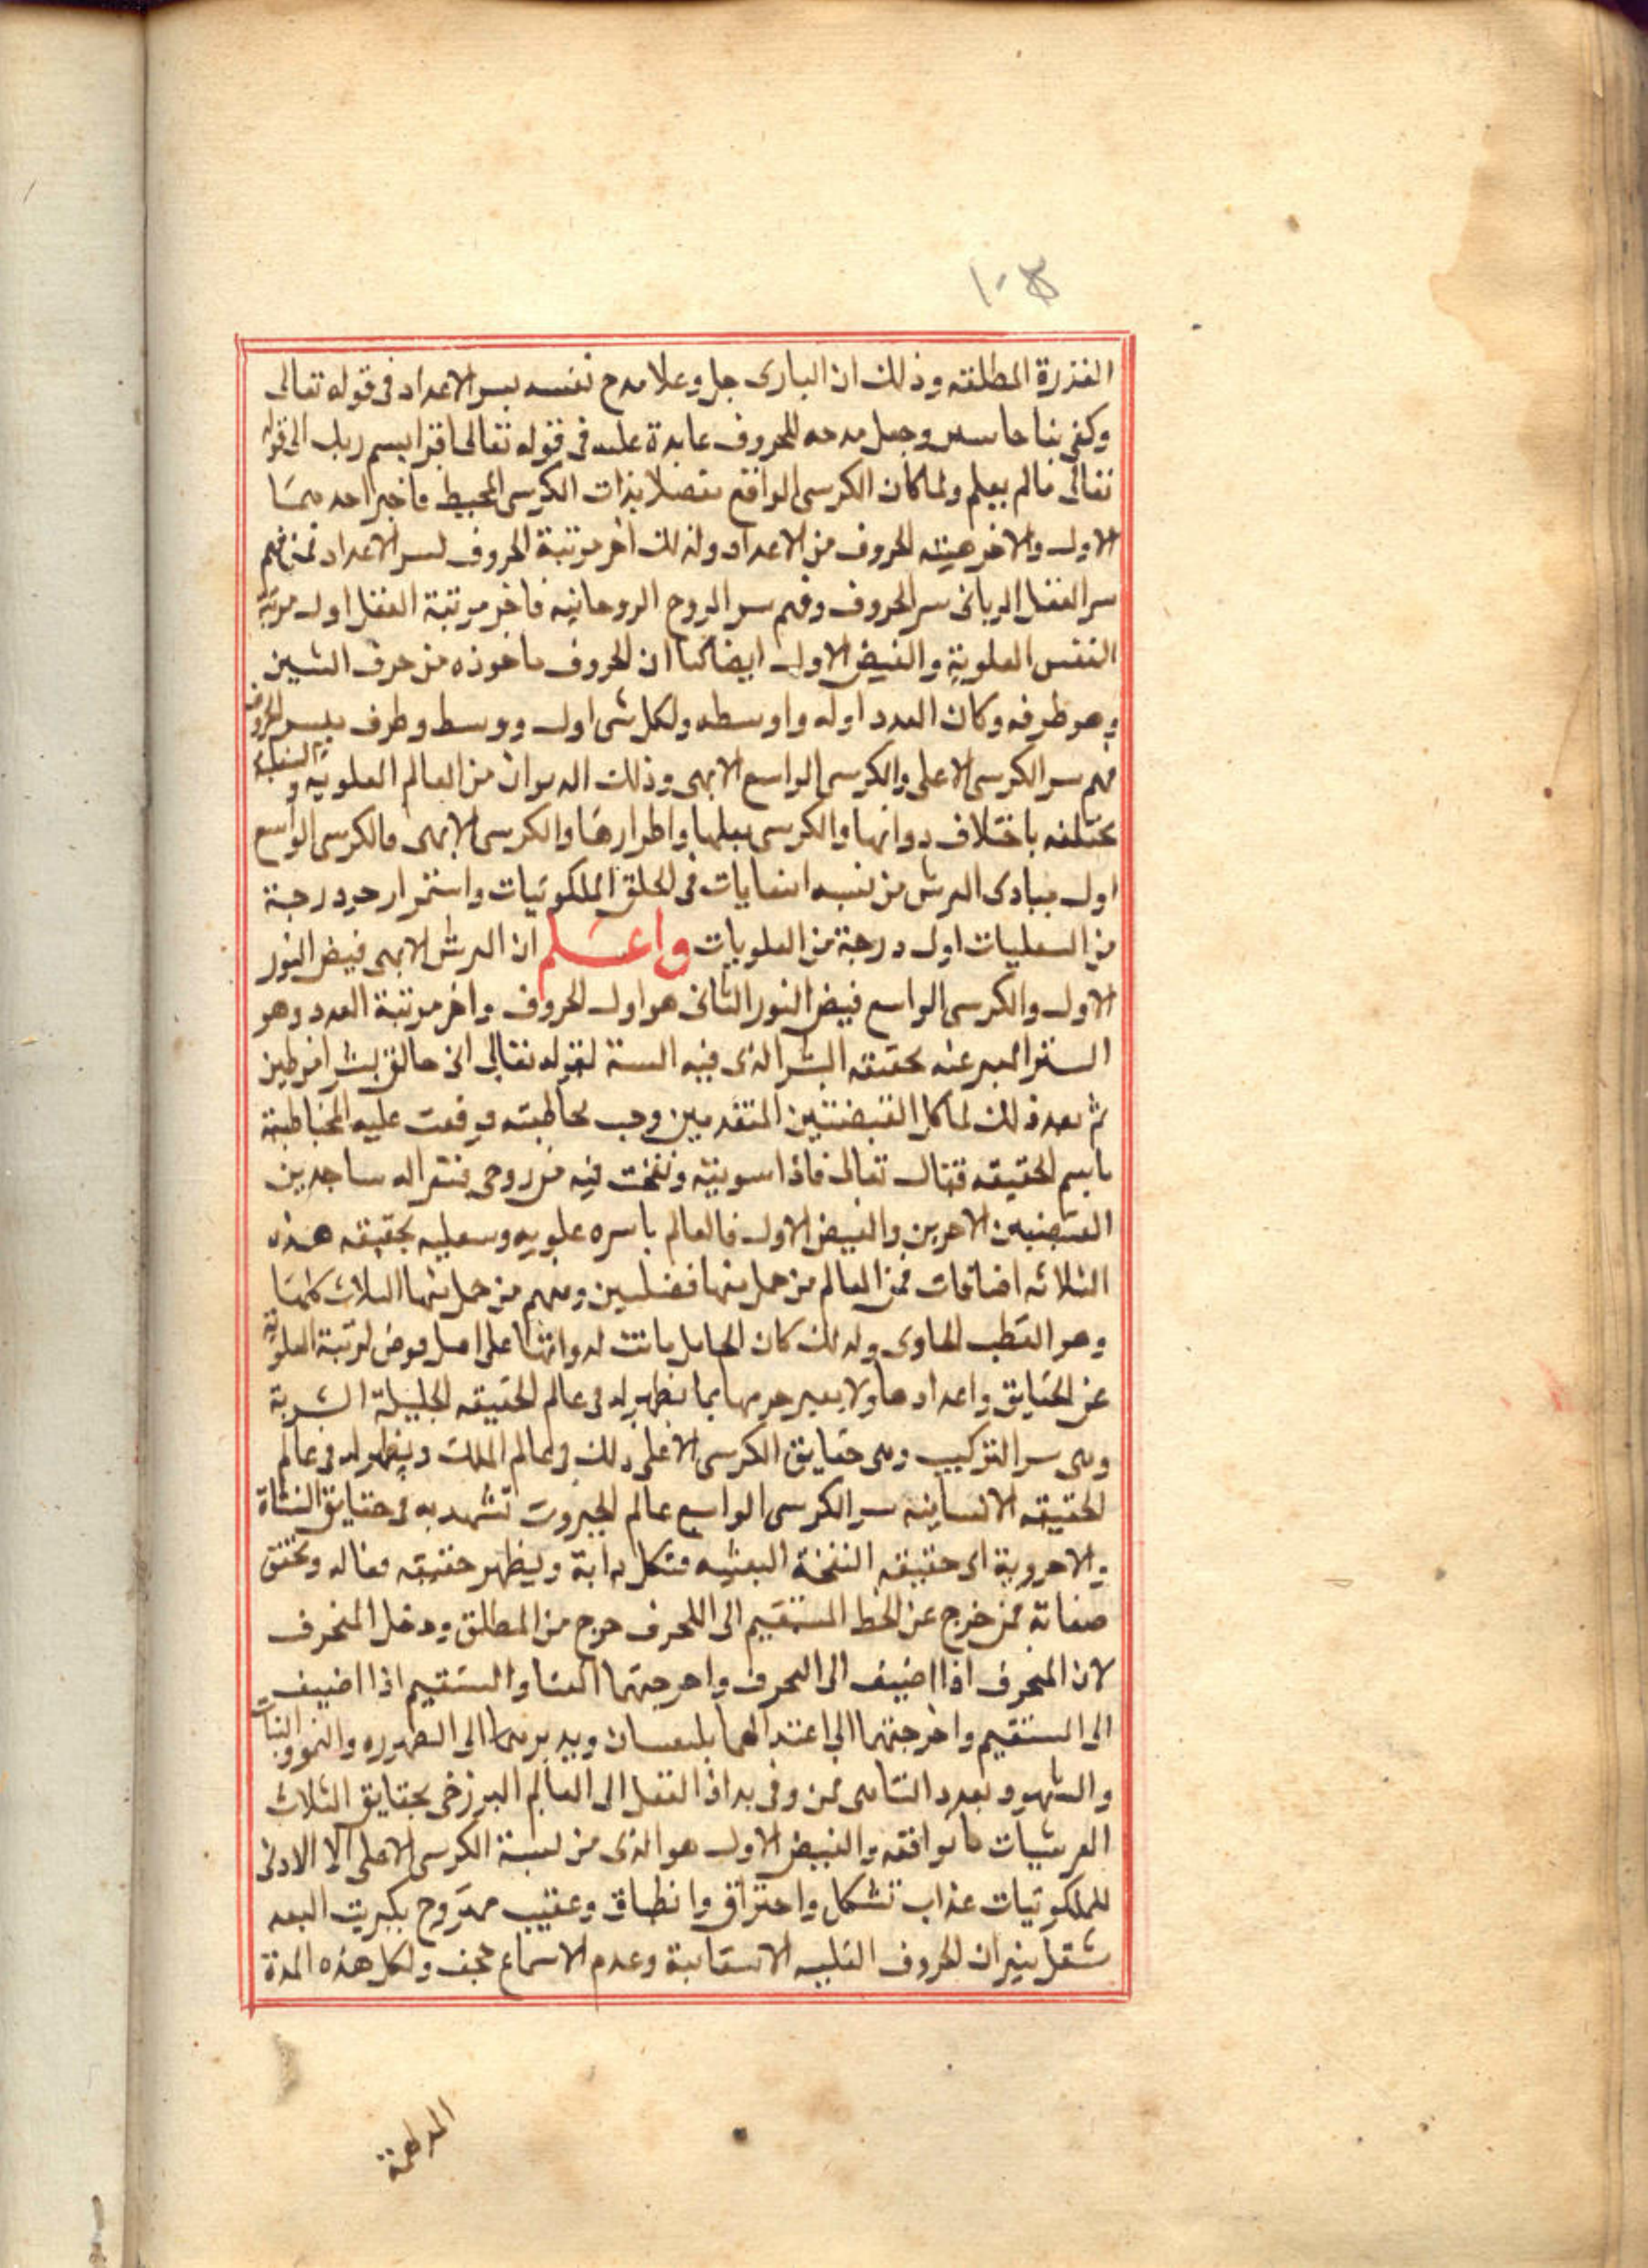 ١٠٣
القدرة المطلقه وذلك ان البارى جل وعلا مدح نفسه بسر الاعداد فى قوله تعالى
وكفى بنا حاسبين وجعل مدحه للحروف عايدة عليه فى قوله تعالى اقرا بسم ربك الى قوله
تعالى مالم يعلم ولما كان الكرسى الواقع متصلا بذات الكرسى المحيط فاخبر احد
الاول والاخر هيئه الحروف من الاعداد ولذلك اخر مرتبة الحروف لسر الاعداد فمن فهم
سر العقل الربانى سر الحروف وفهم سر الروح الروحانيه فاخر مرتبة العقل اول مرتبة
النفس العلوية والفيض الاول ايضا كما ان الحروف ماخوذه من حرف الشين
وهو طرفه وكان العدد اوله واوسطه ولكل شى اول ووسط وطرف بسر الحروف
فهم سر الكرسى الاعلى والكرسى الواسع الابهى وذلك ان من العالم العلويه والسفلية
مختلفه باختلاف دواتها والكرسى واطرارها والكرسى الابهى والكرسى الواسع
اول مبادى العرش من نسبه فى الخلق الملكوتيات واستقرار درجة
من السفليات اول درجة من العلويات واعلم ان العرش الابهى فيض النور
الاول والكرسى الواسع فيض النور الثانى هو اول الحروف واخر مرتبة العدد وهو
المعبر عنه بحقيقه البشر الذى فيه الستة لقوله تعالى انى خالق بشرا من طين
ثم بعد ذلك لما كمل القبضتين المتقدمين وجب مخاطبته ووقعت عليه المخاطبة
باسم الحقيقه فقال تعالى فاذا سويته ونفخت فيه من روحى فقعوا له ساجدين
الاخرين والفيض الاول فالعالم باسره علويه وسفليه بحقيقه هذه
الثلاثه اضافات فمن العالم من حمل منها فضلين ومنهم من حمل منها الثلاث كلها
وهو القطب الحاوى ولذلك كان الحامل على اصل لرتبة العلوية
عن الحقايق واعدادها ولا يعبر بما يظهر له فى عالم الحقيقه الجليلة البشرية
وهى سر التركيب وهى حقايق الكرسى الاعلى وذلك فى عالم الملك ويظهر له فى عالم
الحقيقه الانسانيه سر الكرسى الواسع عالم الجبروت تشهد به فى حقايق النشاة
والاخروية اى حقيقه النفخة البعثيه ويظهر حقيقه فعاله وتحقق
صفاته فمن خرج عن الخط المستقيم الى المحرف خرج من المطلق ودخل المنحرف
لان المنحرف اذا اضيف الى المحرف واخرجتهما والمستقيم اذا اضيف
الى المستقيم واخرجتهما الى اعتدالهما ويدبرهما الى الظهوره والنمو والنبات
والشهود بعدد التناهى فمن وفى بدا اذا انتقل الى العالم البرزخى بحقايق الثلاث
العرشيات ما يوافقه والفيض الاول هو الذى من نسبة الكرسى الاعلى الا الادنى
للملكوتيات عذاب تشكل واحتراق وانطباق وعقيب ممزوج بكبريت البعد
شعل نيران الحروف القلبيه وعدم الاسماع ولكل هذه المدة